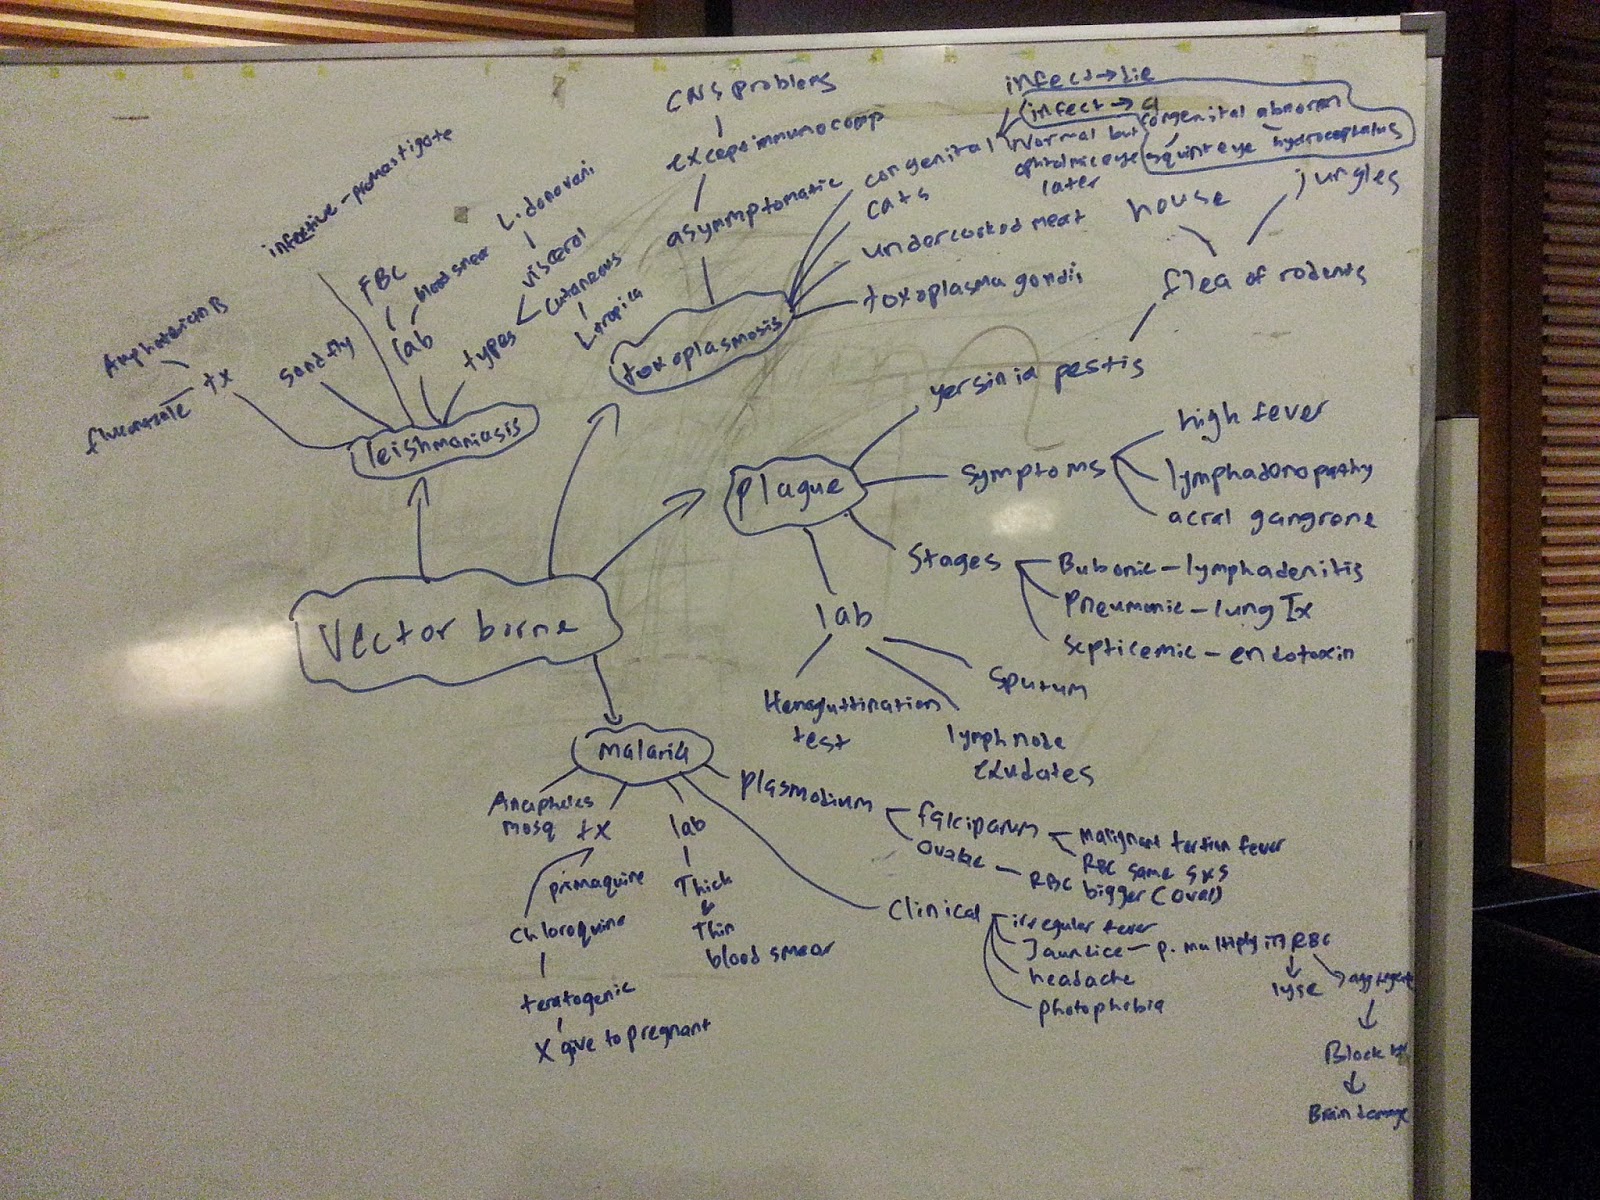 Vector borne
leishmaniasis
tx
Amphoterican B
fluconazole
sand fly
infective - promastigote
lab
FBC
blood smear
types
visceral
L. donovani
cutaneous
L. tropica
toxoplasmosis
asymmptomatic
except immunocomp
CNS problems
congenital
infect → die
infect →
congenital abnorm
squint eye hydrocephalus
Normal but
eye
later
cats
undercooked meat
toxoplasma gondii
plague
yersinia pestis
flea of rodents
house
jungles
symptoms
high fever
lymphadenopathy
acral gangrene
Stages
Bubonic - lymphadenitis
Pneumonic - lung Ix
Septicemic - endotoxin
lab
Hemagluttination
test
lymph node
exudates
Sputum
malaria
Anopheles
mosq
tx
primaquine
chloroquine
teratogenic
X give to pregnant
lab
Thick
&
Thin
blood smear
Plasmodium
falciparum
malignant tertian fever
RBC same sxs
ovale
RBC bigger (oval)
Clinical
irregular fever
Jaundice - p. multiply in RBC
lyse
aggregate
Block
Brain damage
headache
photophobia